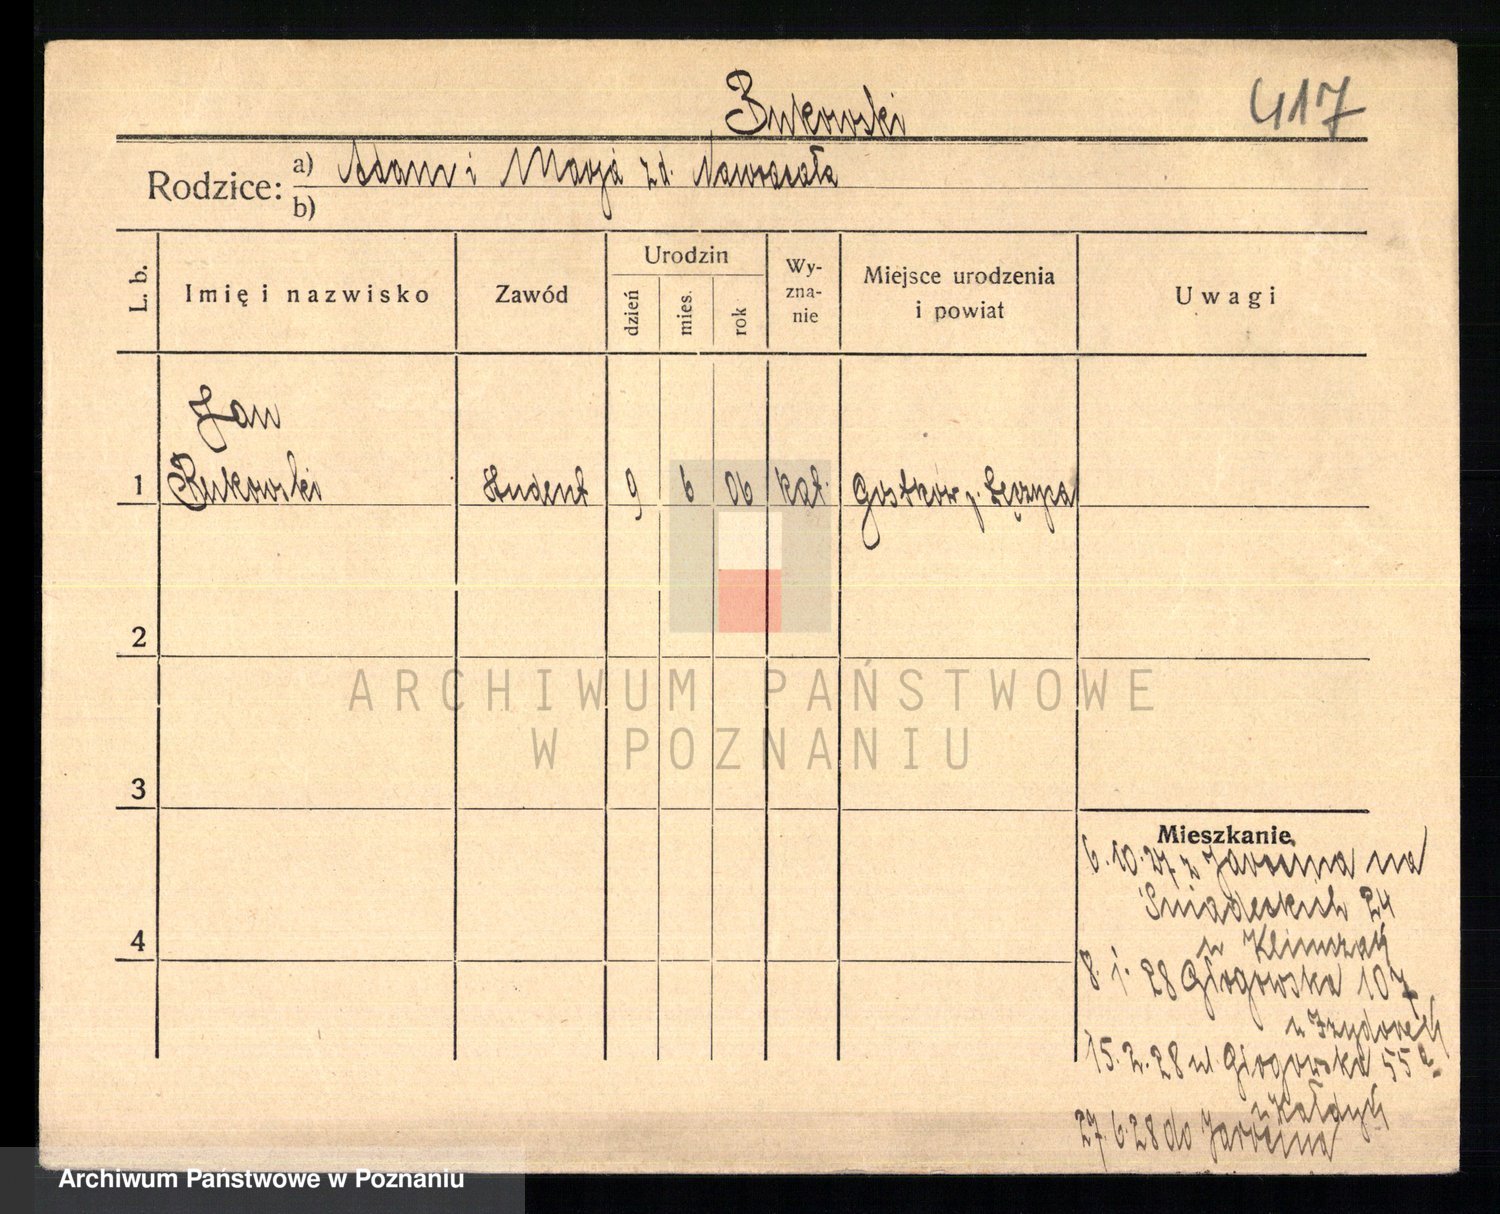 Bukowski
417
Rodzice: a) Adam i Marja zd. Nawrocała
b)
L. b. Imię i nazwisko Zawód Urodzin dzień mies. rok Wyznanie Miejsce urodzenia i powiat Uwagi
Jan
1 Bukowski student 9 6 06 kat. Gostków p. Łęczyca
2
ARCHIWUM PAŃSTWOWE
W POZNANIU
3
Mieszkanie
6.10.27 z Jarocina na
Śniadeckich 24
u Klimczak
4
8.1.28 Głogowska 107
u Izydorek
15.2.28 ul Głogowska 55a
u
27.6.28 do Jarocina
Archiwum Państwowe w Poznaniu